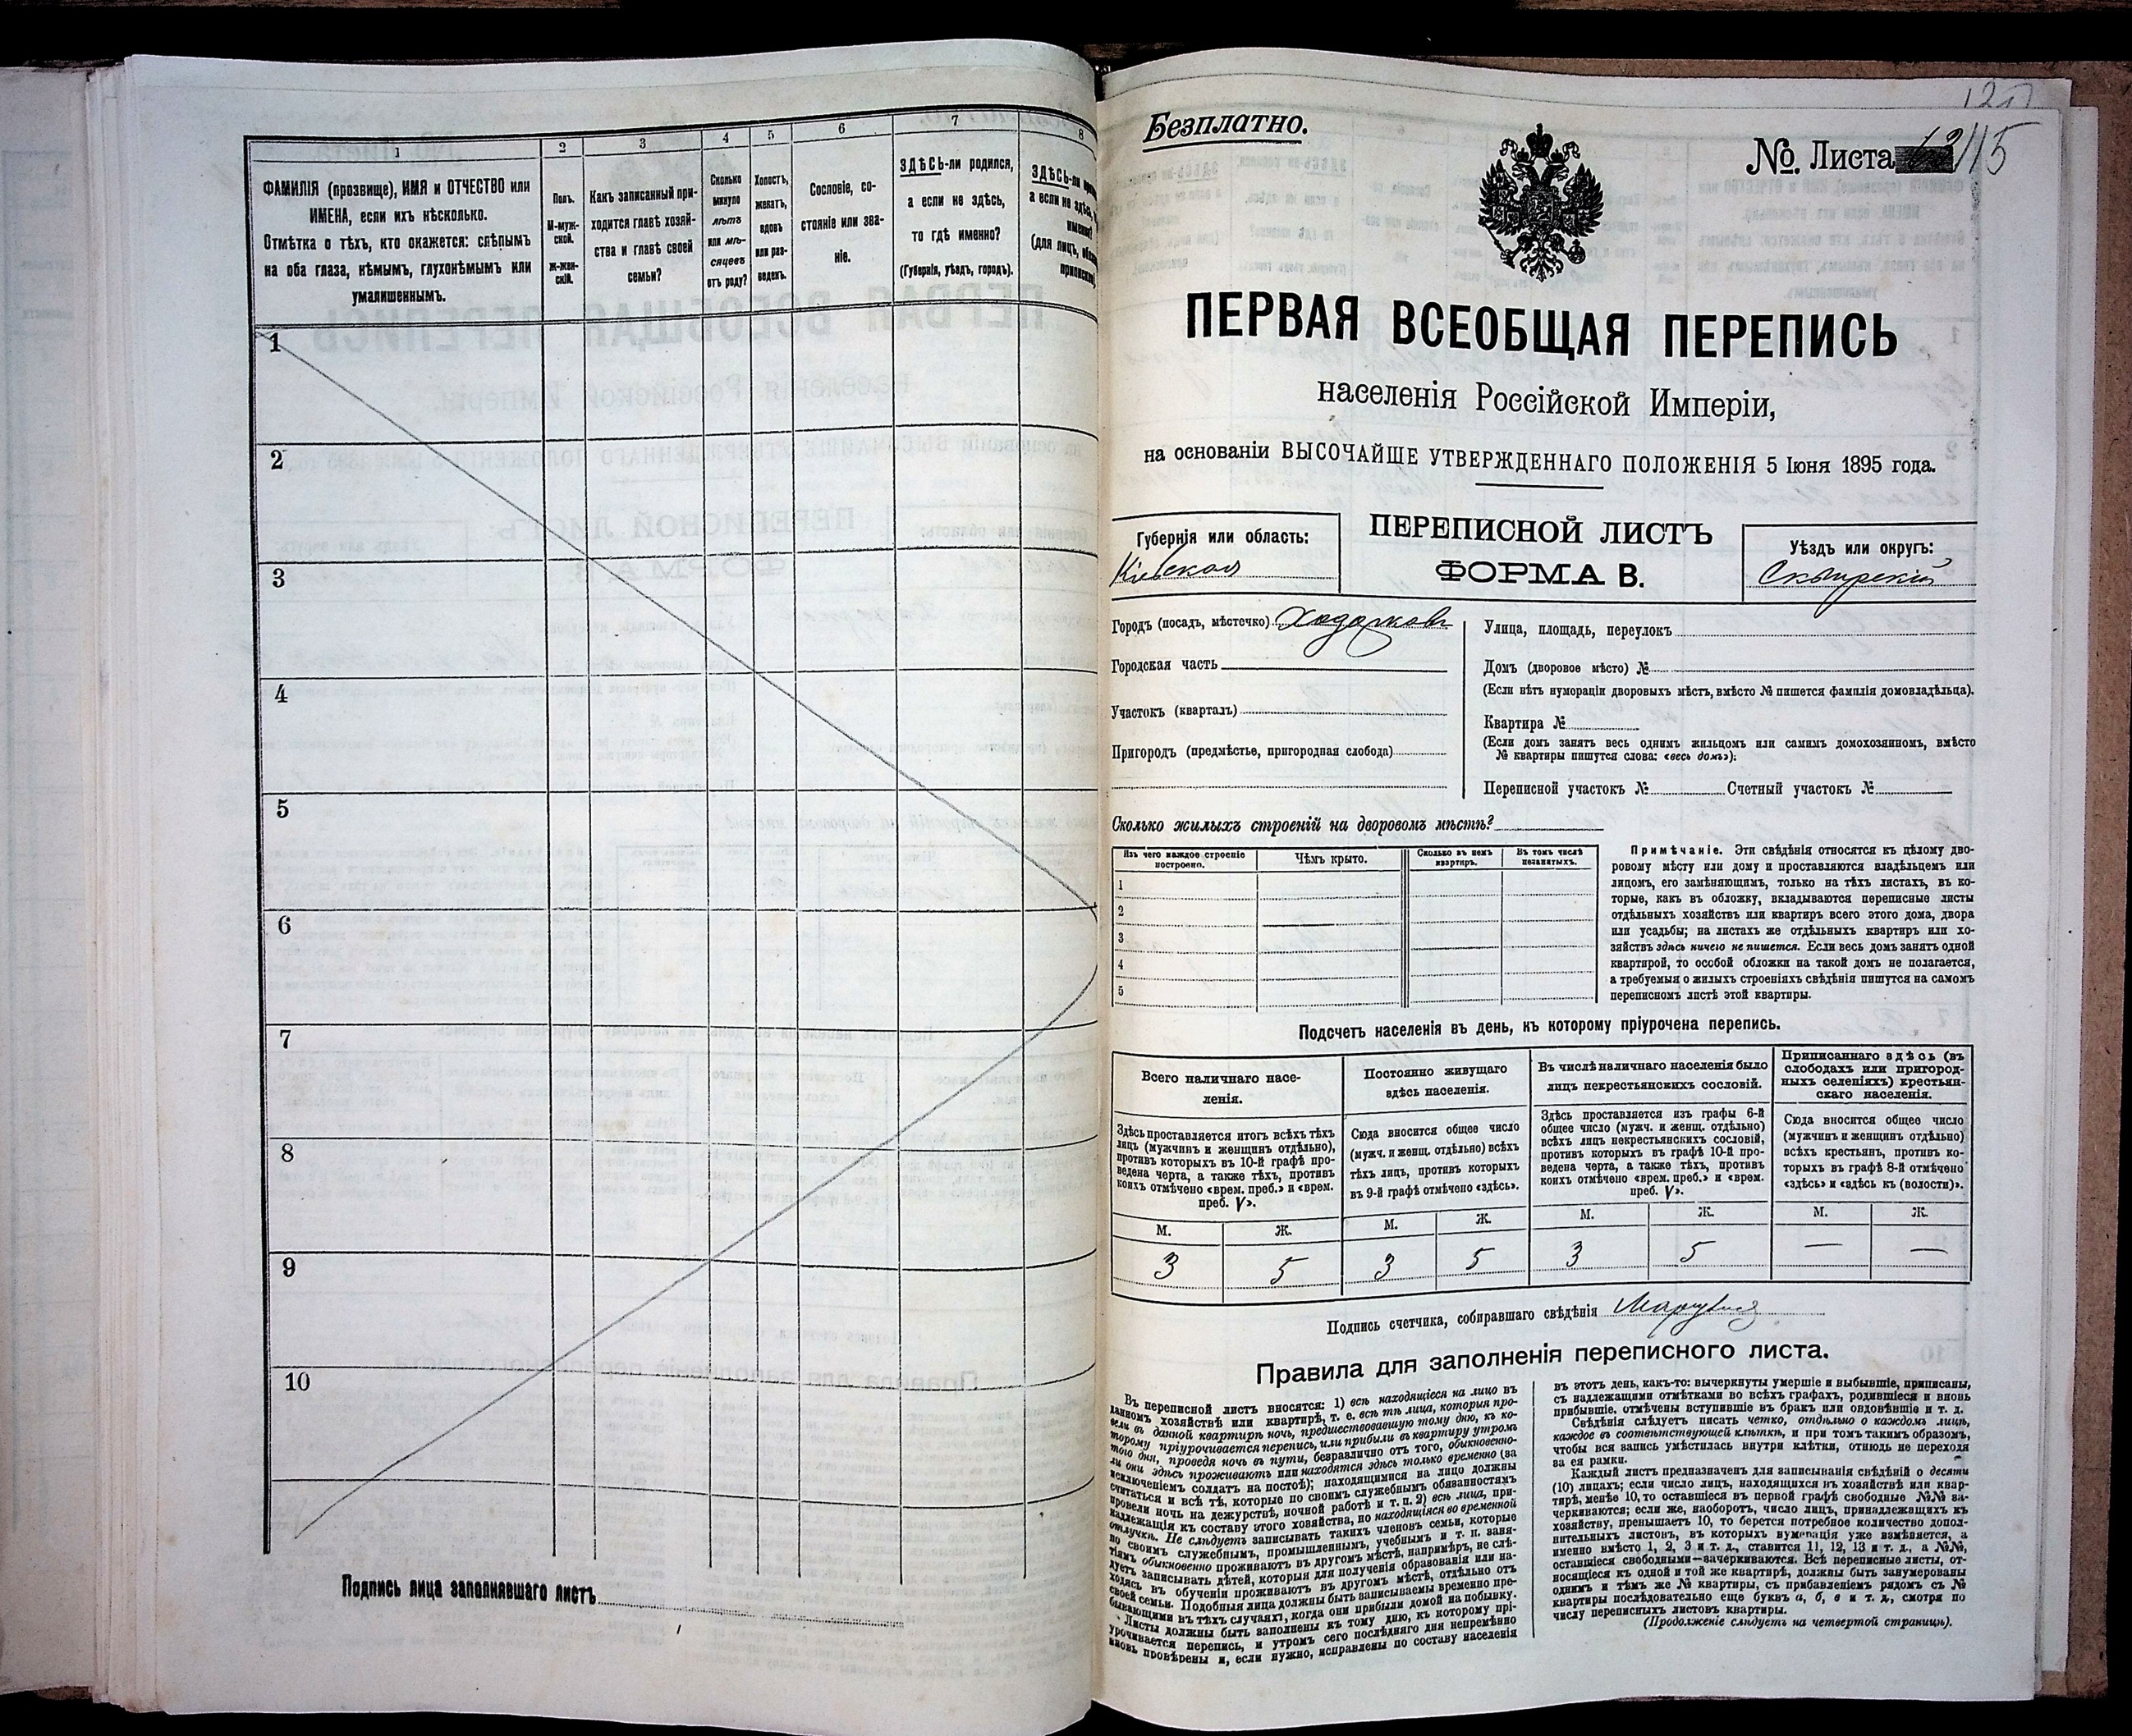 1
2
3
4
5
6
7
8
ФАМИЛІЯ (прозвище), ИМЯ и ОТЧЕСТВО или
ИМЕНА, если ихъ нѣсколько.
Отмѣтка о тѣхъ, кто окажется: слѣпымъ
на оба глаза, нѣмымъ, глухонѣмымъ или
умалишеннымъ.
Полъ.
М-муж-
ской.
ж-жен-
скій.
Какъ записанный при-
ходится главѣ хозяй-
ства и главѣ своей
семьи?
Сколько
минуло
лѣтъ
или мѣ-
сяцевъ
отъ роду?
Холостъ,
женатъ,
вдовъ
или раз-
веденъ.
Сословіе, со-
стояніе или зва-
ніе.
ЗДѢСЬ-ли родился,
а если не здѣсь,
то гдѣ именно?
(Губернія, уѣздъ, городъ).
ЗДѢСЬ-ли
а если не здѣсь,
именно?
(для лицъ,
1
2
3
4
5
6
7
8
9
10
Подпись лица заполнявшаго листъ
Безплатно.
№ Листа 115
ПЕРВАЯ ВСЕОБЩАЯ ПЕРЕПИСЬ
населенія Россійской Имперіи,
на основаніи ВЫСОЧАЙШЕ УТВЕРЖДЕННАГО ПОЛОЖЕНІЯ 5 Іюня 1895 года.
Губернія или область:
Кіевская
ПЕРЕПИСНОЙ ЛИСТЪ
ФОРМА В.
Уѣздъ или округъ:
Сквирскій
Городъ (посадъ, мѣстечко) Ходорковъ
Городская часть
Участокъ (кварталъ)
Пригородъ (предмѣстье, пригородная слобода)
Улица, площадь, переулокъ
Домъ (дворовое мѣсто) №
(Если нѣтъ нумораціи дворовыхъ мѣстъ, вмѣсто № пишется фамилія домовладѣльца).
Квартира №
(Если домъ занятъ весь однимъ жильцомъ или самимъ домохозяиномъ, вмѣсто
№ квартиры пишутся слова: «весь домъ»);
Переписной участокъ № Счетный участокъ №
Сколько жилыхъ строеній на дворовомъ мѣстѣ?
Изъ чего каждое строеніе
построено.
Чѣмъ крыто.
Сколько въ немъ
квартиръ.
Въ томъ числѣ
незанятыхъ.
1
2
3
4
5
Примѣчаніе. Эти свѣдѣнія относятся къ цѣлому дво-
ровому мѣсту или дому и проставляются владѣльцемъ или
лицомъ, его замѣняющимъ, только на тѣхъ листахъ, въ ко-
торые, какъ въ обложку, вкладываются переписные листы
отдѣльныхъ хозяйствъ или квартиръ всего этого дома, двора
или усадьбы; на листахъ же отдѣльныхъ квартиръ или хо-
зяйствъ здѣсь ничего не пишется. Если весь домъ занятъ одной
квартирой, то особой обложки на такой домъ не полагается,
а требуемыя о жилыхъ строеніяхъ свѣдѣнія пишутся на самомъ
переписномъ листѣ этой квартиры.
Подсчетъ населенія въ день, къ которому пріурочена перепись.
Всего наличнаго насе-
ленія.
Здѣсь проставляется итогъ всѣхъ тѣхъ
лицъ (мужчинъ и женщинъ отдѣльно),
противъ которыхъ въ 10-й графѣ про-
ведена черта, а также тѣхъ, противъ
коихъ отмѣчено «врем. преб.» и «врем.
преб. V».
Постоянно живущаго
здѣсь населенія.
Сюда вносится общее число
(мужч. и женщ. отдѣльно) всѣхъ
тѣхъ лицъ, противъ которыхъ
въ 9-й графѣ отмѣчено «здѣсь».
Въ числѣ наличнаго населенія было
лицъ некрестьянскихъ сословій.
Здѣсь проставляется изъ графы 6-й
общее число (мужч. и женщ. отдѣльно)
всѣхъ лицъ некрестьянскихъ сословій,
противъ которыхъ въ графѣ 10-й про-
ведена черта, а также тѣхъ, противъ
коихъ отмѣчено «врем. преб.» и «врем.
преб. V».
Приписаннаго здѣсь (въ
слободахъ или пригород-
ныхъ селеніяхъ) крестьян-
скаго населенія.
Сюда вносится общее число
(мужчинъ и женщинъ отдѣльно)
всѣхъ крестьянъ, противъ ко-
торыхъ въ графѣ 8-й отмѣчено
«здѣсь» и «здѣсь къ (волости)».
М. Ж. М. Ж. М. Ж. М. Ж.
3 5 3 5 3 5 — —
Подпись счетчика, собиравшаго свѣдѣнія
Правила для заполненія переписного листа.
Въ переписной листъ вносятся: 1) всѣ находящіеся на лицо въ
данномъ хозяйствѣ или квартирѣ, т. е. всѣ тѣ лица, которыя про-
вели въ данной квартирѣ ночь, предшествовавшую тому дню, къ ко-
торому пріурочивается перепись, или прибыли въ квартиру утромъ
того дня, проведя ночь въ пути, безразлично отъ того, обыкновенно-
ли они здѣсь проживаютъ или находятся здѣсь только временно (за
исключеніемъ солдатъ на постоѣ); находящимися на лицо должны
считаться и всѣ тѣ, которые по своимъ служебнымъ обязанностямъ
провели ночь на дежурствѣ, ночной работѣ и т. п. 2) всѣ лица, при-
надлежащія къ составу этого хозяйства, но находящіяся во временной
отлучкѣ. Не слѣдуетъ записывать такихъ членовъ семьи, которые
по своимъ служебнымъ, промышленнымъ, учебнымъ и т. п. заня-
тіямъ обыкновенно проживаютъ въ другомъ мѣстѣ, напримѣръ, не слѣ-
дуетъ записывать дѣтей, которыя для полученія образованія или на-
ходясь въ обученіи проживаютъ въ другомъ мѣстѣ, отдѣльно отъ
своей семьи. Подобныя лица должны быть записываемы временно пре-
бывающими въ тѣхъ случаяхъ, когда они прибыли домой на побывку.
Листы должны быть заполнены къ тому дню, къ которому прі-
урочивается перепись, и утромъ сего послѣдняго дня непремѣнно
вновь провѣрены и, если нужно, исправлены по составу населенія
въ этотъ день, какъ-то: вычеркнуты умершіе и выбывшіе, приписаны,
съ надлежащими отмѣтками во всѣхъ графахъ, родившіеся и вновь
прибывшіе, отмѣчены вступившіе въ бракъ или овдовѣвшіе и т. д.
Свѣдѣнія слѣдуетъ писать четко, отдѣльно о каждомъ лицѣ,
каждое въ соотвѣтствующей клѣткѣ, и при томъ такимъ образомъ,
чтобы вся запись умѣстилась внутри клѣтки, отнюдь не переходя
за ея рамки.
Каждый листъ предназначенъ для записыванія свѣдѣній о десяти
(10) лицахъ; если число лицъ, находящихся въ хозяйствѣ или квар-
тирѣ, менѣе 10, то оставшіеся въ первой графѣ свободные №№ за-
черкиваются; если же, наоборотъ, число лицъ, принадлежащихъ къ
хозяйству, превышаетъ 10, то берется потребное количество допол-
нительныхъ листовъ, въ которыхъ нумерація уже измѣняется, а
именно вмѣсто 1, 2, 3 и т. д., ставится 11, 12, 13 и т. д., а №№,
оставшіеся свободными—зачеркиваются. Всѣ переписные листы, от-
носящіеся къ одной и той же квартирѣ, должны быть занумерованы
однимъ и тѣмъ же № квартиры, съ прибавленіемъ рядомъ съ №
квартиры послѣдовательно еще буквъ а, б, в и т. д., смотря по
числу переписныхъ листовъ квартиры.
(Продолженіе слѣдуетъ на четвертой страницѣ).